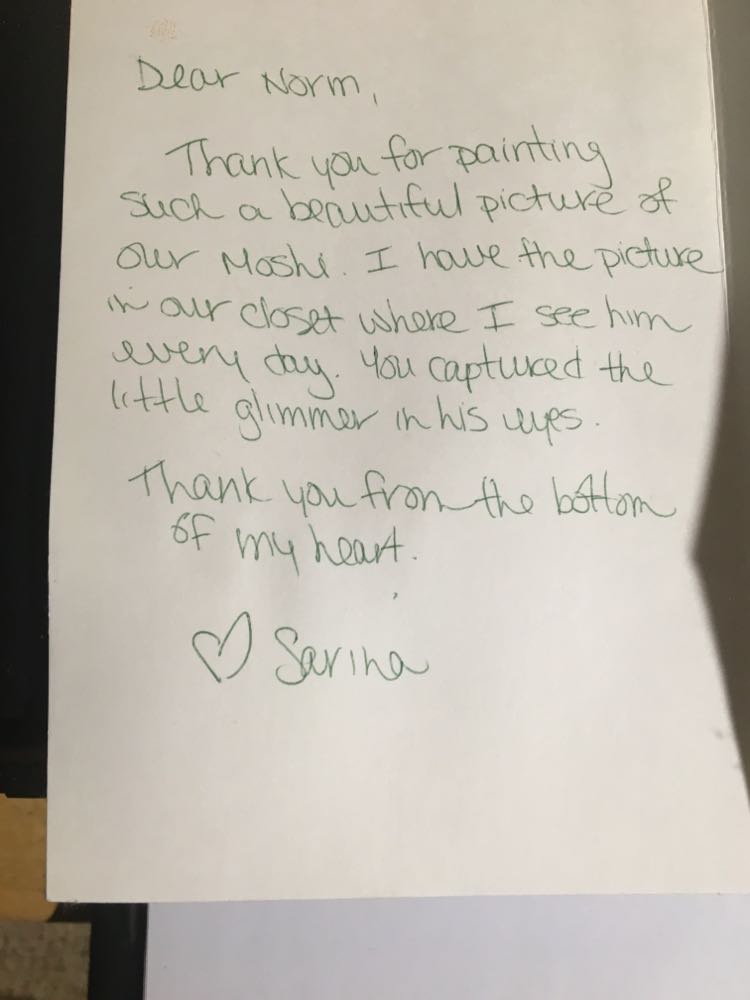 Dear Norm,
Thank you for painting
such a beautiful picture of
our Moshi. I have the picture
in our closet where I see him
every day. You captured the
little glimmer in his eyes.
Thank you from the bottom
of my heart.
♡ Sarina